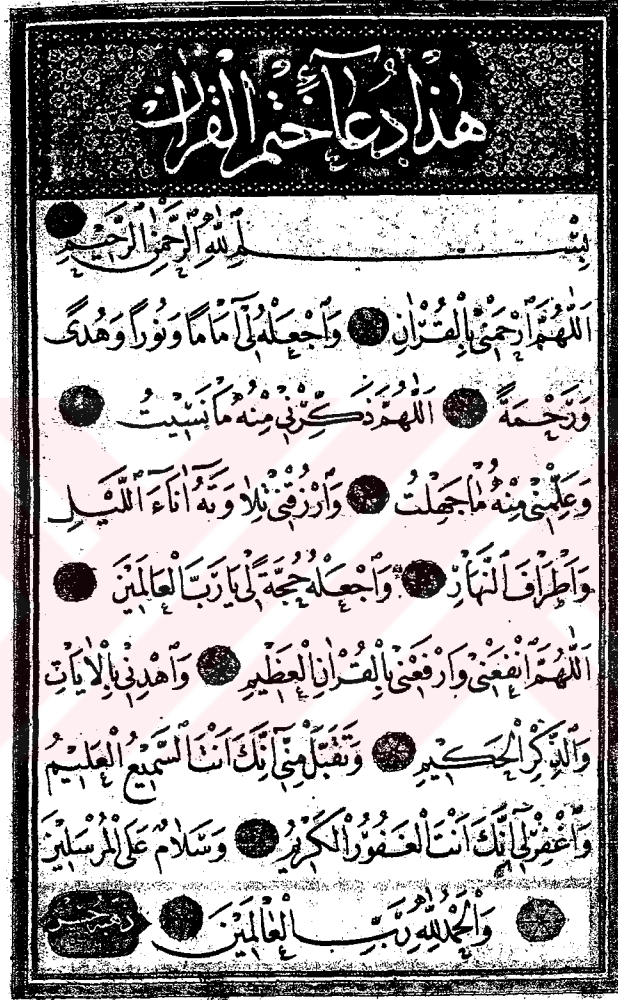 هٰذَا دُعَآءُ خَتْمِ الْقُرْاٰنِ
بِسْمِ اللّٰهِ الرَّحْمٰنِ الرَّحِيمِ
اَللّٰهُمَّ ارْحَمْنِي بِالْقُرْاٰنِ وَاجْعَلْهُ لِٓي اِمَامًا وَنُورًا وَهُدًى
وَرَحْمَةً اَللّٰهُمَّ ذَكِّرْنِي مِنْهُ مَا نَسِيتُ
وَعَلِّمْنِي مِنْهُ مَا جَهِلْتُ وَارْزُقْنِي تِلَاوَتَهُٓ اٰنَاءَ اللَّيْلِ
وَاَطْرَافَ النَّهَارِ وَاجْعَلْهُ حُجَّةً لِي يَا رَبَّ الْعَالَمِينَ
اَللّٰهُمَّ انْفَعْنِي وَارْفَعْنِي بِالْقُرْاٰنِ الْعَظِيمِ وَاهْدِنِي بِالْاٰيَاتِ
وَالذِّكْرِ الْحَكِيمِ وَتَقَبَّلْ مِنِّٓي اِنَّكَ اَنْتَ السَّمِيعُ الْعَلِيمُ
وَاغْفِرْ لِٓي اِنَّكَ اَنْتَ الْغَفُورُ الْكَرِيمُ وَسَلَامٌ عَلَى الْمُرْسَلِينَ
وَالْحَمْدُ لِلّٰهِ رَبِّ الْعَالَمِينَ